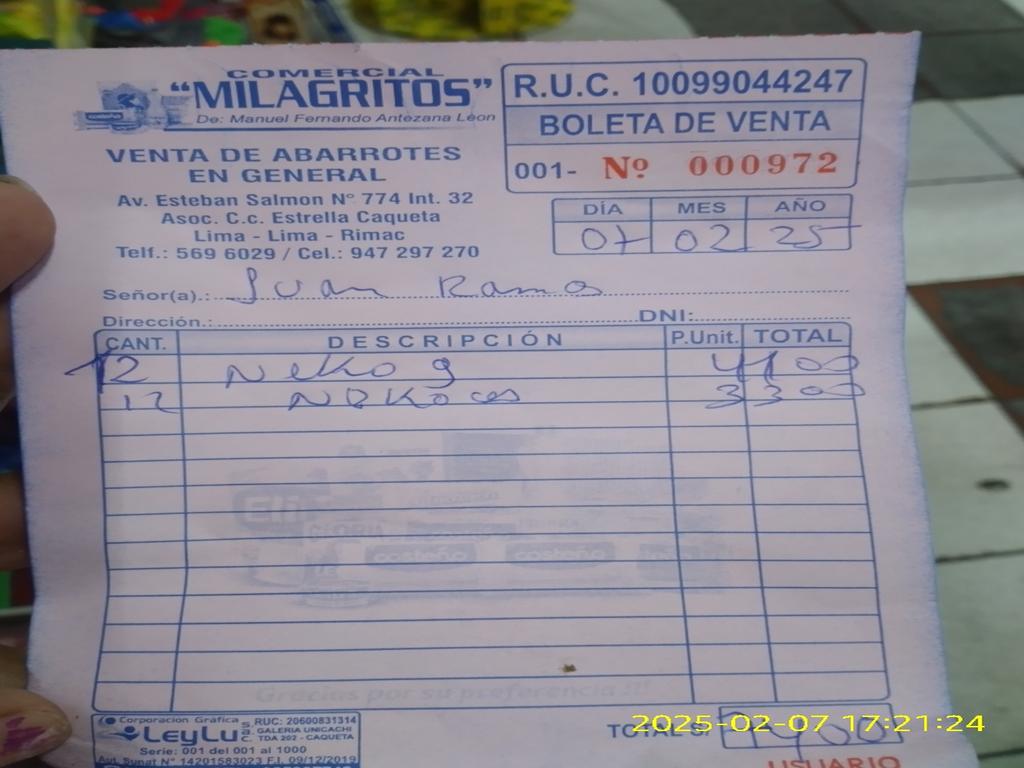 COMERCIAL
"MILAGRITOS"
De: Manuel Fernando Antezana León
VENTA DE ABARROTES
EN GENERAL
Av. Esteban Salmon Nº 774 Int. 32
Asoc. C.c. Estrella Caqueta
Lima - Lima - Rimac
Telf.: 569 6029 / Cel.: 947 297 270
R.U.C. 10099044247
BOLETA DE VENTA
001- Nº 000972
DÍA MES AÑO
07 02 25
Señor(a).: Juan Ramos
Dirección.: DNI:
CANT. DESCRIPCIÓN P.Unit. TOTAL
12
12
costeño costeño
Gracias por su preferencia !!!
Corporacion Gráfica
LeyLu S.A.C.
RUC: 20600831314
GALERIA UNICACHI
TDA 202 - CAQUETA
Serie: 001 del 001 al 1000
Aut. Sunat N° 14201583023 F.I. 09/12/2019
TOTAL S/.
2025-02-07 17:21:24
USUARIO